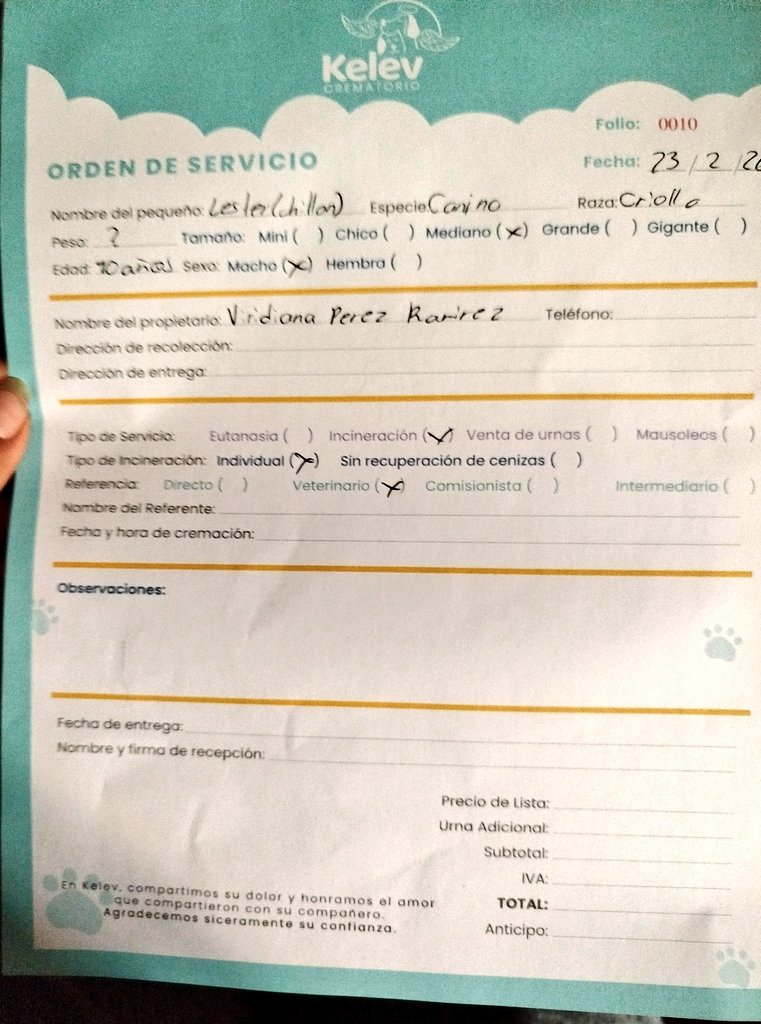 Kelev
CREMATORIO
Folio: 0010
ORDEN DE SERVICIO
Fecha: 23 / 2 /
Nombre del pequeño: Lester (chillon) Especie Canino Raza: Criollo
Peso: ? Tamaño: Mini ( ) Chico ( ) Mediano (x) Grande ( ) Gigante ( )
Edad: 10 años Sexo: Macho (x) Hembra ( )
Nombre del propietario: Viridiana Perez Ramirez Teléfono:
Dirección de recolección:
Dirección de entrega:
Tipo de Servicio: Eutanasia ( ) Incineración (x) Venta de urnas ( ) Mausoleos ( )
Tipo de Incineración: Individual (x) Sin recuperación de cenizas ( )
Referencia: Directo ( ) Veterinario (x) Comisionista ( ) Intermediario ( )
Nombre del Referente:
Fecha y hora de cremación:
Observaciones:
Fecha de entrega:
Nombre y firma de recepción:
Precio de Lista:
Urna Adicional:
Subtotal:
IVA:
TOTAL:
Anticipo:
En Kelev, compartimos su dolor y honramos el amor
que compartieron con su compañero.
Agradecemos siceramente su confianza.